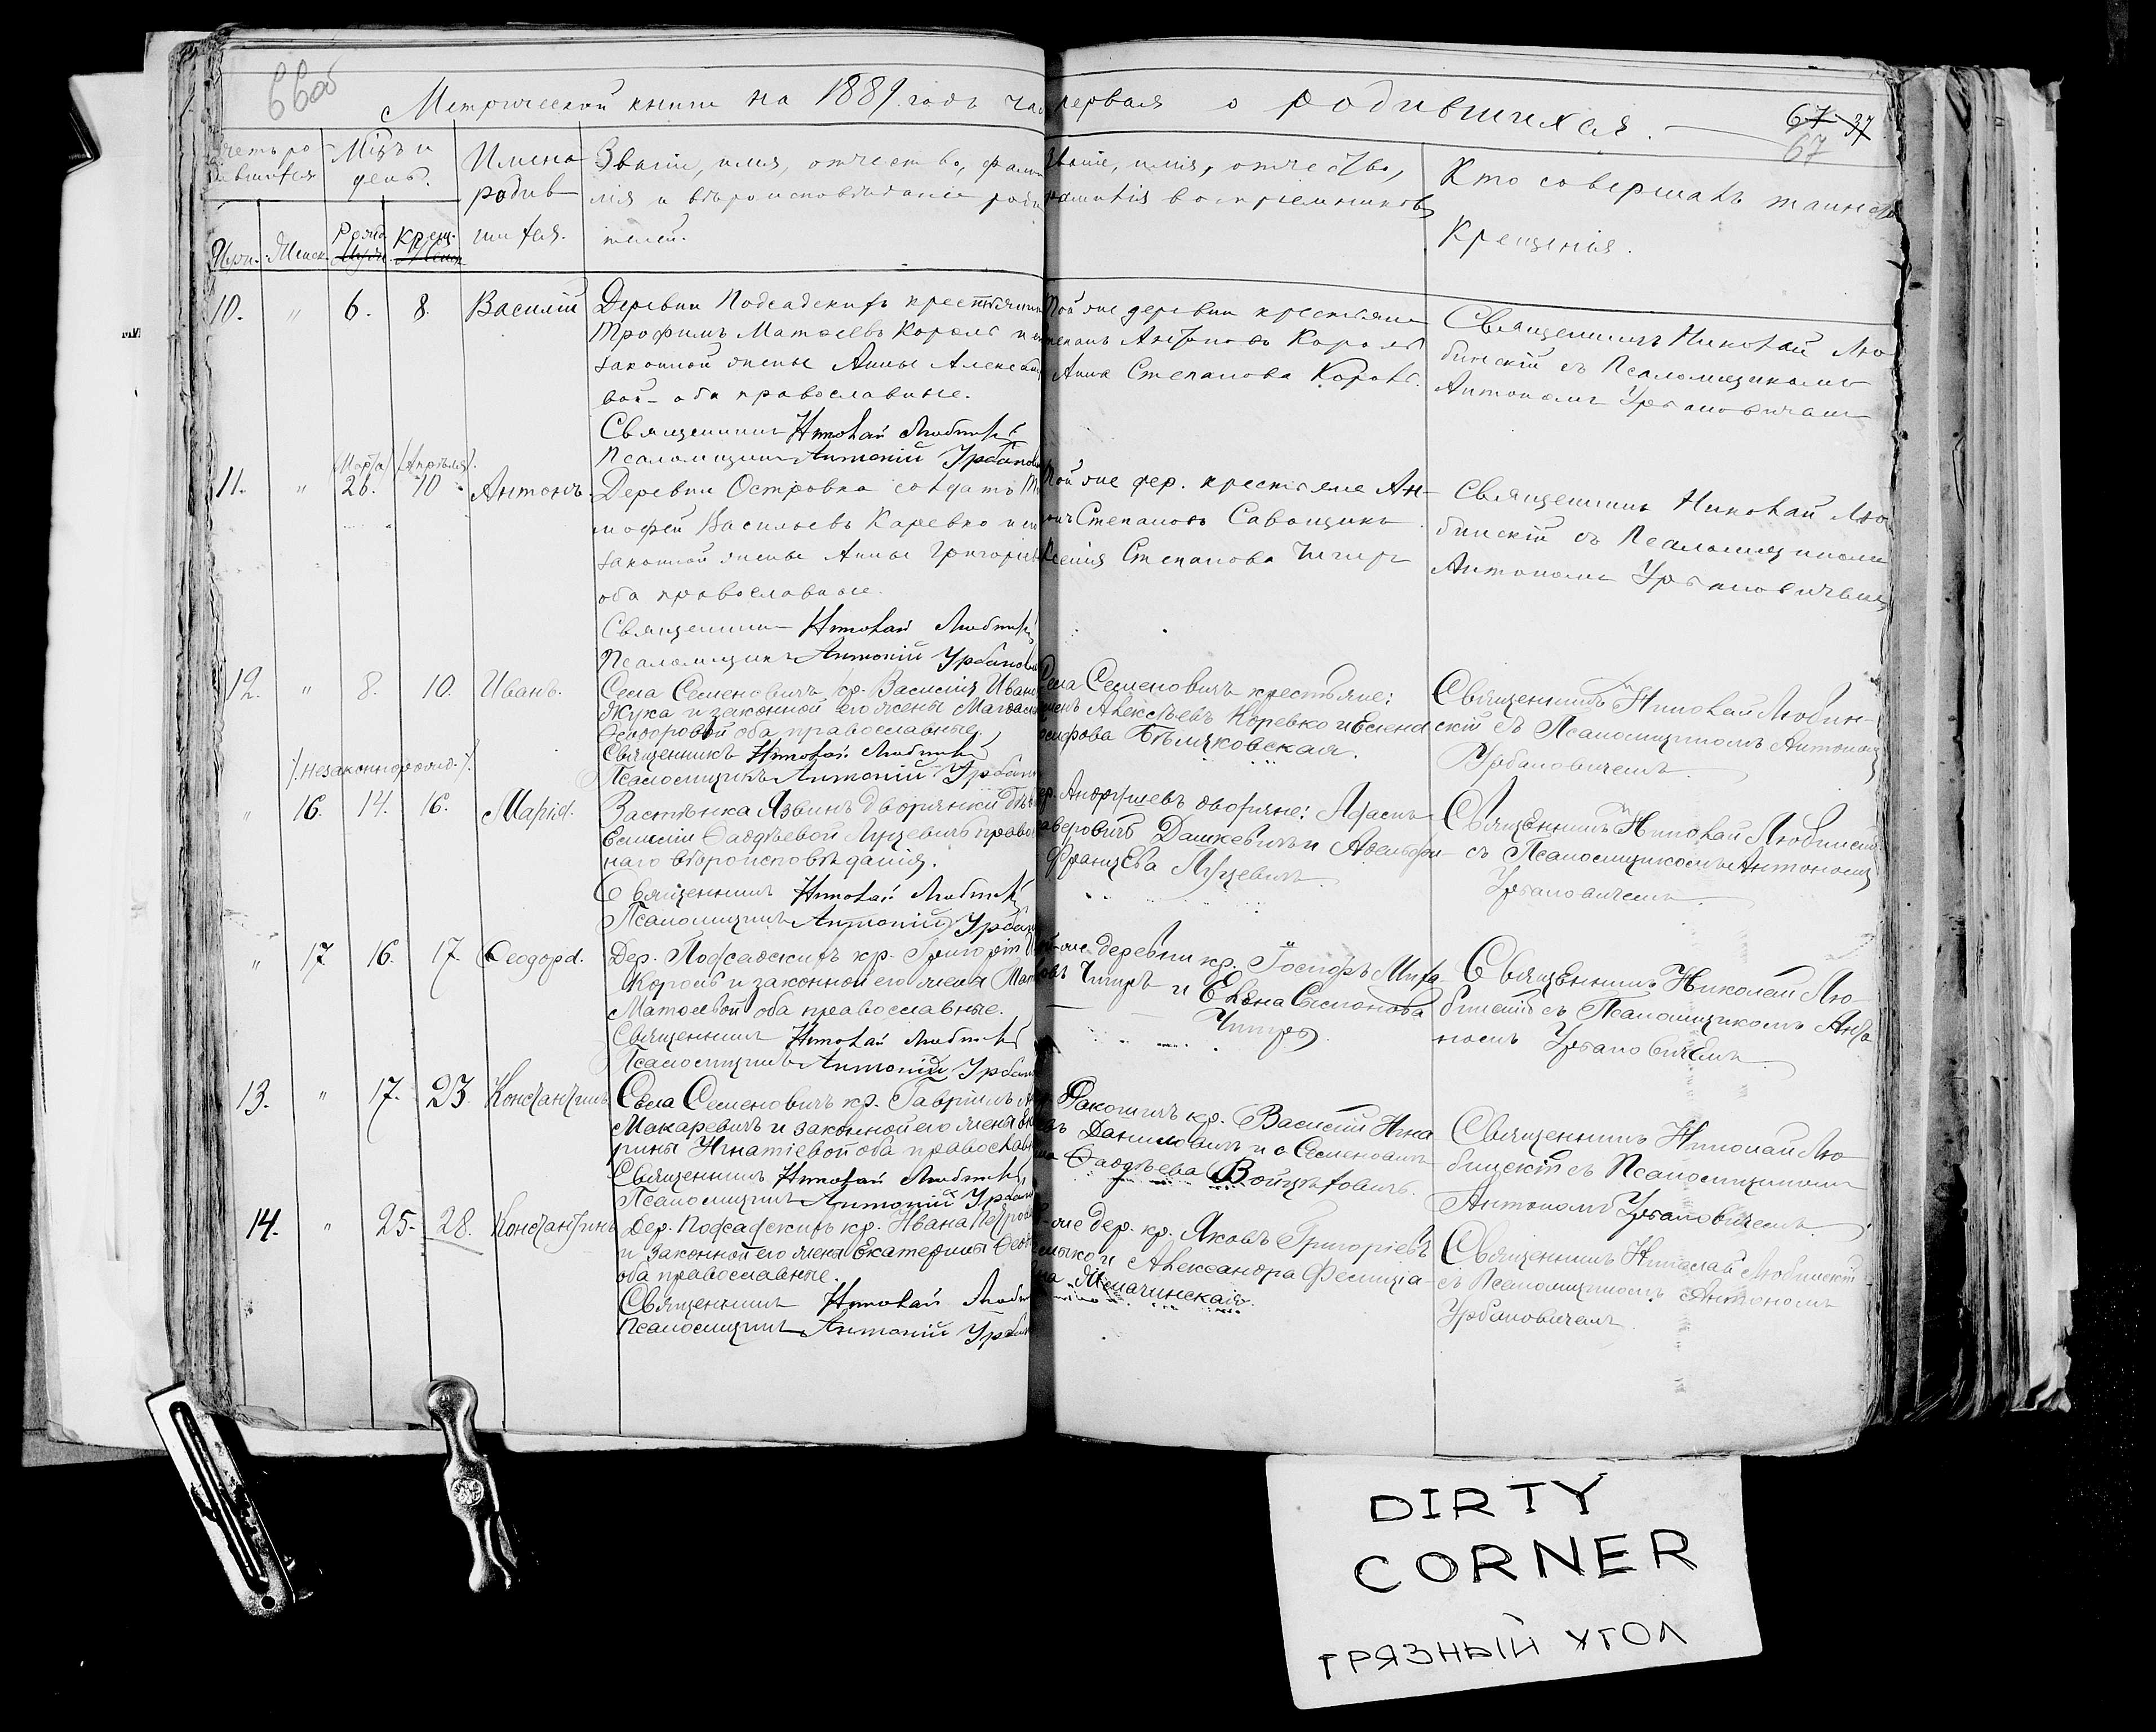 66об
Метрической книги на 1889 годъ час
первая о родившихся.
67 37
67
Счетъ ро
дившихся
Мцъ и
день.
Имена
родив
шихся.
Званіе, имя, отчество, фами
лія и вѣроисповѣданіе роди
телей.
Муж. Женск. Рожд. Крещ.
Званіе, имя, отчество,
фамилія воспріемниковъ
Кто совершалъ таинство
Крещенія.
10. " 6. 8. Василій
Деревни Подсадскихъ крестьянинъ
Трофимъ Матѳеевъ Король и
законной жены Анны Александ
вой - оба православные.
Священникъ Николай Любинскій
Псаломщикъ Антоній Урбанов
Той же деревни крестьяне
Антоновъ Король
Анна Степанова Король.
Священникъ Николай Лю
бинскій съ Псаломщикомъ
Антономъ Урбановичемъ
11. " Марта 26. Апрѣля 10. Антонъ.
Деревни Островка солдатъ Ти
мофей Васильевъ Каревко и
законной жены Анны Григорьев
оба православные.
Священникъ Николай Любинскій
Псаломщикъ Антоній Урбанов
Той же дер. крестьяне Ан-
Степановъ Саванщикъ
Ксенія Степанова Чигирь
Священникъ Николай Лю
бинскій съ Псаломщикомъ
Антономъ Урбановичемъ
12. " 8. 10. Иванъ.
Села Семеновичъ, кр. Василія Иван
Жука и законной его жены Магдал
Ѳеодоровой оба православные.
Священникъ Николай Любинскій
Псаломщикъ Антоній Урбан
Села Семеновичъ крестьяне:
Алексѣевъ Каревко и Елена
Осифова Бѣлячковская.
Священникъ Николай Любин-
скій съ Псаломщикомъ Антономъ
Урбановичемъ
/. Незаконнорожд. ./
" 16. 14. 16. Марія.
Застѣнка Язвинъ дворянки дѣв
Емиліи Ѳаддѣевой Луцевичъ право
наго вѣроисповѣданія.
Священникъ Николай Любинскій
Псаломщикъ Антоній Урбан
дворяне:
Дашкевичъ и
Францева Луцевичъ
Священникъ Николай Любинскій
съ Псаломщикомъ Антономъ
Урбановичемъ
" 17 16. 17. Ѳеодора.
Дер. Подсадскихъ кр. Григорій
Король и законной его жены
Матѳеевой оба православные.
Священникъ Николай Любинскій
Псаломщикъ Антоній Урбан
деревни кр. Іосифъ Миха
Чигирь и Елена Семенова
Чигирь
Священникъ Николай Лю-
бинскій съ Псаломщикомъ Анто
номъ Урбановичемъ
13. " 17. 23. Константинъ
Села Семеновичъ кр. Гавріилъ
Макаревичъ и законной его жены
рины Игнатіевой оба православ
Священникъ Николай Любинскій
Псаломщикъ Антоній Урбан
кр. Василій Игна
Даниловичъ и с. Семеновичъ
Ѳаддѣева Войцѣховичъ.
Священникъ Николай Лю
бинскій съ Псаломщикомъ
Антономъ Урбановичемъ
14. " 25. 28. Константинъ
Дер. Подсадскихъ кр. Ивана Петров
и законной его жены Екатерины
оба православные.
Священникъ Николай Любин
Псаломщикъ Антоній Урбан
дер. кр. Яковъ Григорьевъ
и Александра Фелиціа-
Священникъ Николай Любинскій
съ Псаломщикомъ Антономъ
Урбановичемъ
DIRTY
CORNER
ГРЯЗНЫЙ УГОЛ